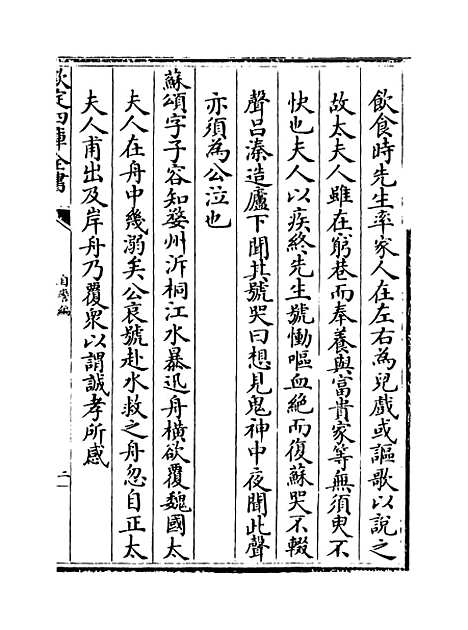 飲食時先生率家人在左右為兒戲或謳歌以說之
故太夫人雖在窮巷而奉養與富貴家等無須臾不
快也夫人以疾終先生號慟嘔血絕而復蘇哭不輟
聲呂溱造廬下聞其號哭曰想見鬼神中夜聞此聲
亦須為公泣也
蘇頌字子容知婺州泝桐江水暴迅舟橫欲覆魏國太
夫人在舟中幾溺矣公哀號赴水救之舟忽自正太
夫人甫出及岸舟乃覆衆以謂誠孝所感
欽定四庫全書
自警編
二